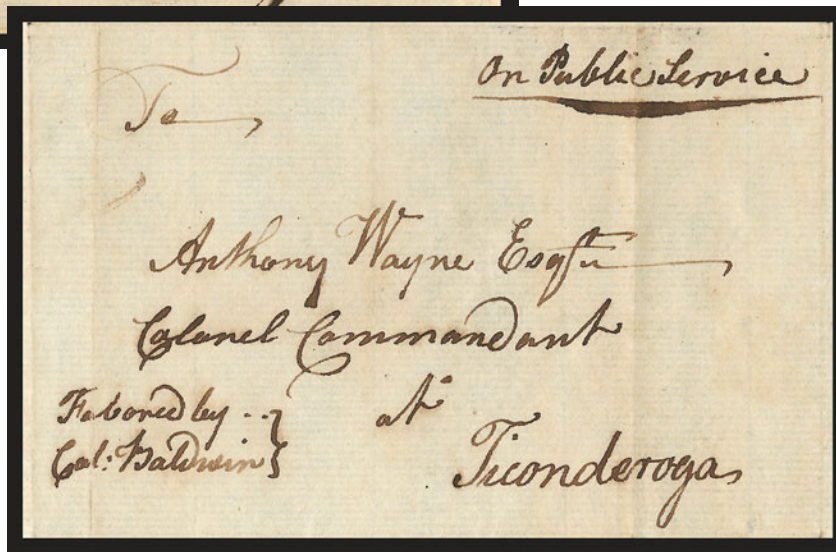 On Public Service
To
Anthony Wayne Esqr
Colonel Commandant
at
Ticonderoga
Favored by
Col: Baldwin